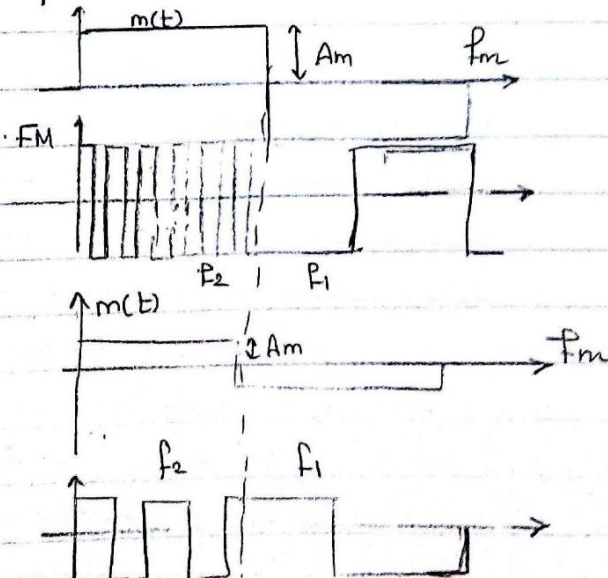 m(t)
Am
fm
FM
f2
f1
m(t)
Am
fm
f2
f1